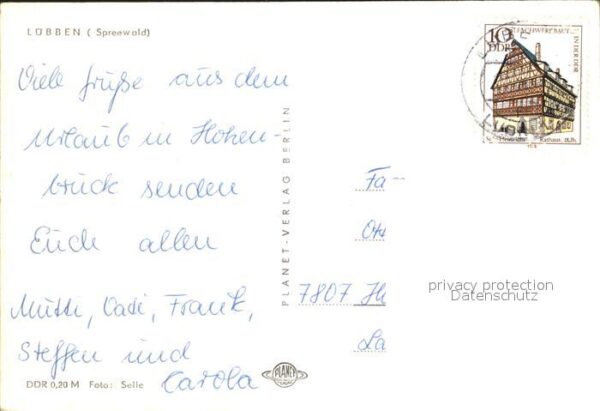 LÜBBEN ( Spreewald)
Viele Grüße aus dem
Urlaub in Hohen-
brück senden
Euch allen
Mutti, Vati, Frank,
Steffen und
Carola
DDR 0,20 M Foto: Selle
PLANET-VERLAG BERLIN
PLANET
10
DDR
FACHWERKBAUTEN
IN DER DDR
Rathaus
Fa
7807
La
privacy protection
Datenschutz